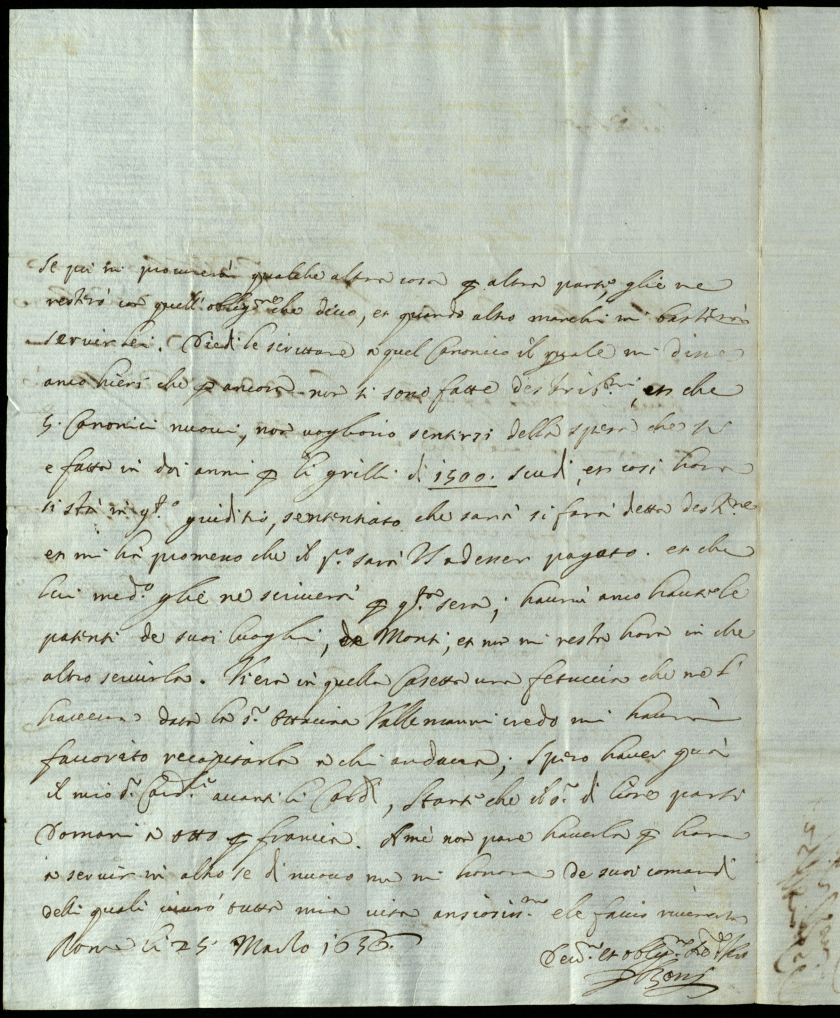 Se poi mi procurerà qualche altra cosa p altra parte, glie ne
resterò con quell' oblig.ne che devo, et quando altro manchi mi basterà
servirlei. Diedi le scritture a quel Canonico il quale mi disse
anco hieri che p ancora non si sono fatte des, et che
5. Canonici nuovi, non vogliono sentirsi della spesa che si
e fatta in doi anni p li grilli di 1500. scudi, et cosi hora
si stà in q.to giuditio, sententiato che sarà si farà detta
et mi hà promesso che il p.o sarà pagato. et che
lui med.o glie ne scriverà p q.ta sera; haurà anco hauute le
patenti de suoi luoghi, de Monti, et non mi resta hora in che
altro seruirla. Viera in quella Casetta una fetuccia che ne l'
haueua data la s.ra Ottauia Vallemanni credo mi haurà
fauorito recapitarla a chi andaua; Spero hauer quà
il mio s.r Card.le auanti li Caldi, stante che il s.r di parti
Domani a otto p francia. A me non pare hauerla p hora
a seruir in altro se di nuouo non mi honora de suoi comandi
delli quali viuerò tutta mia vita ansiosis.mo e le faccio riuerenza
Roma li 25 Marzo 1656.
Deu.mo et oblig.mo